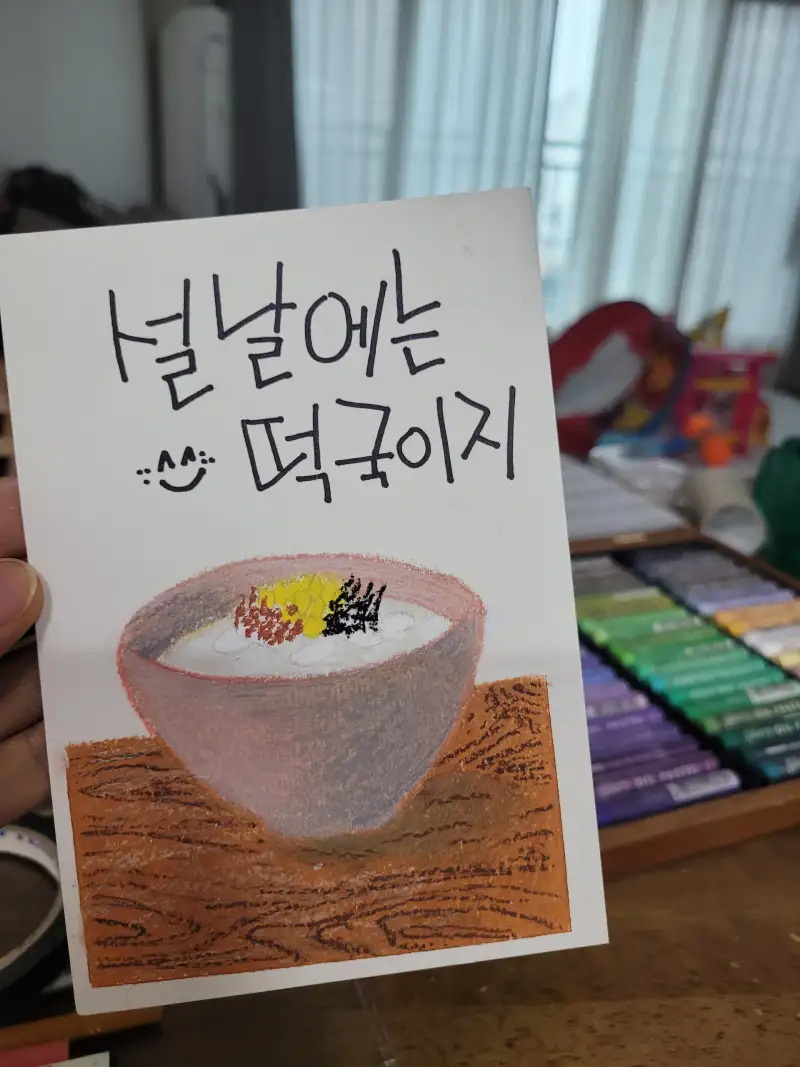 설날에는
떡국이지